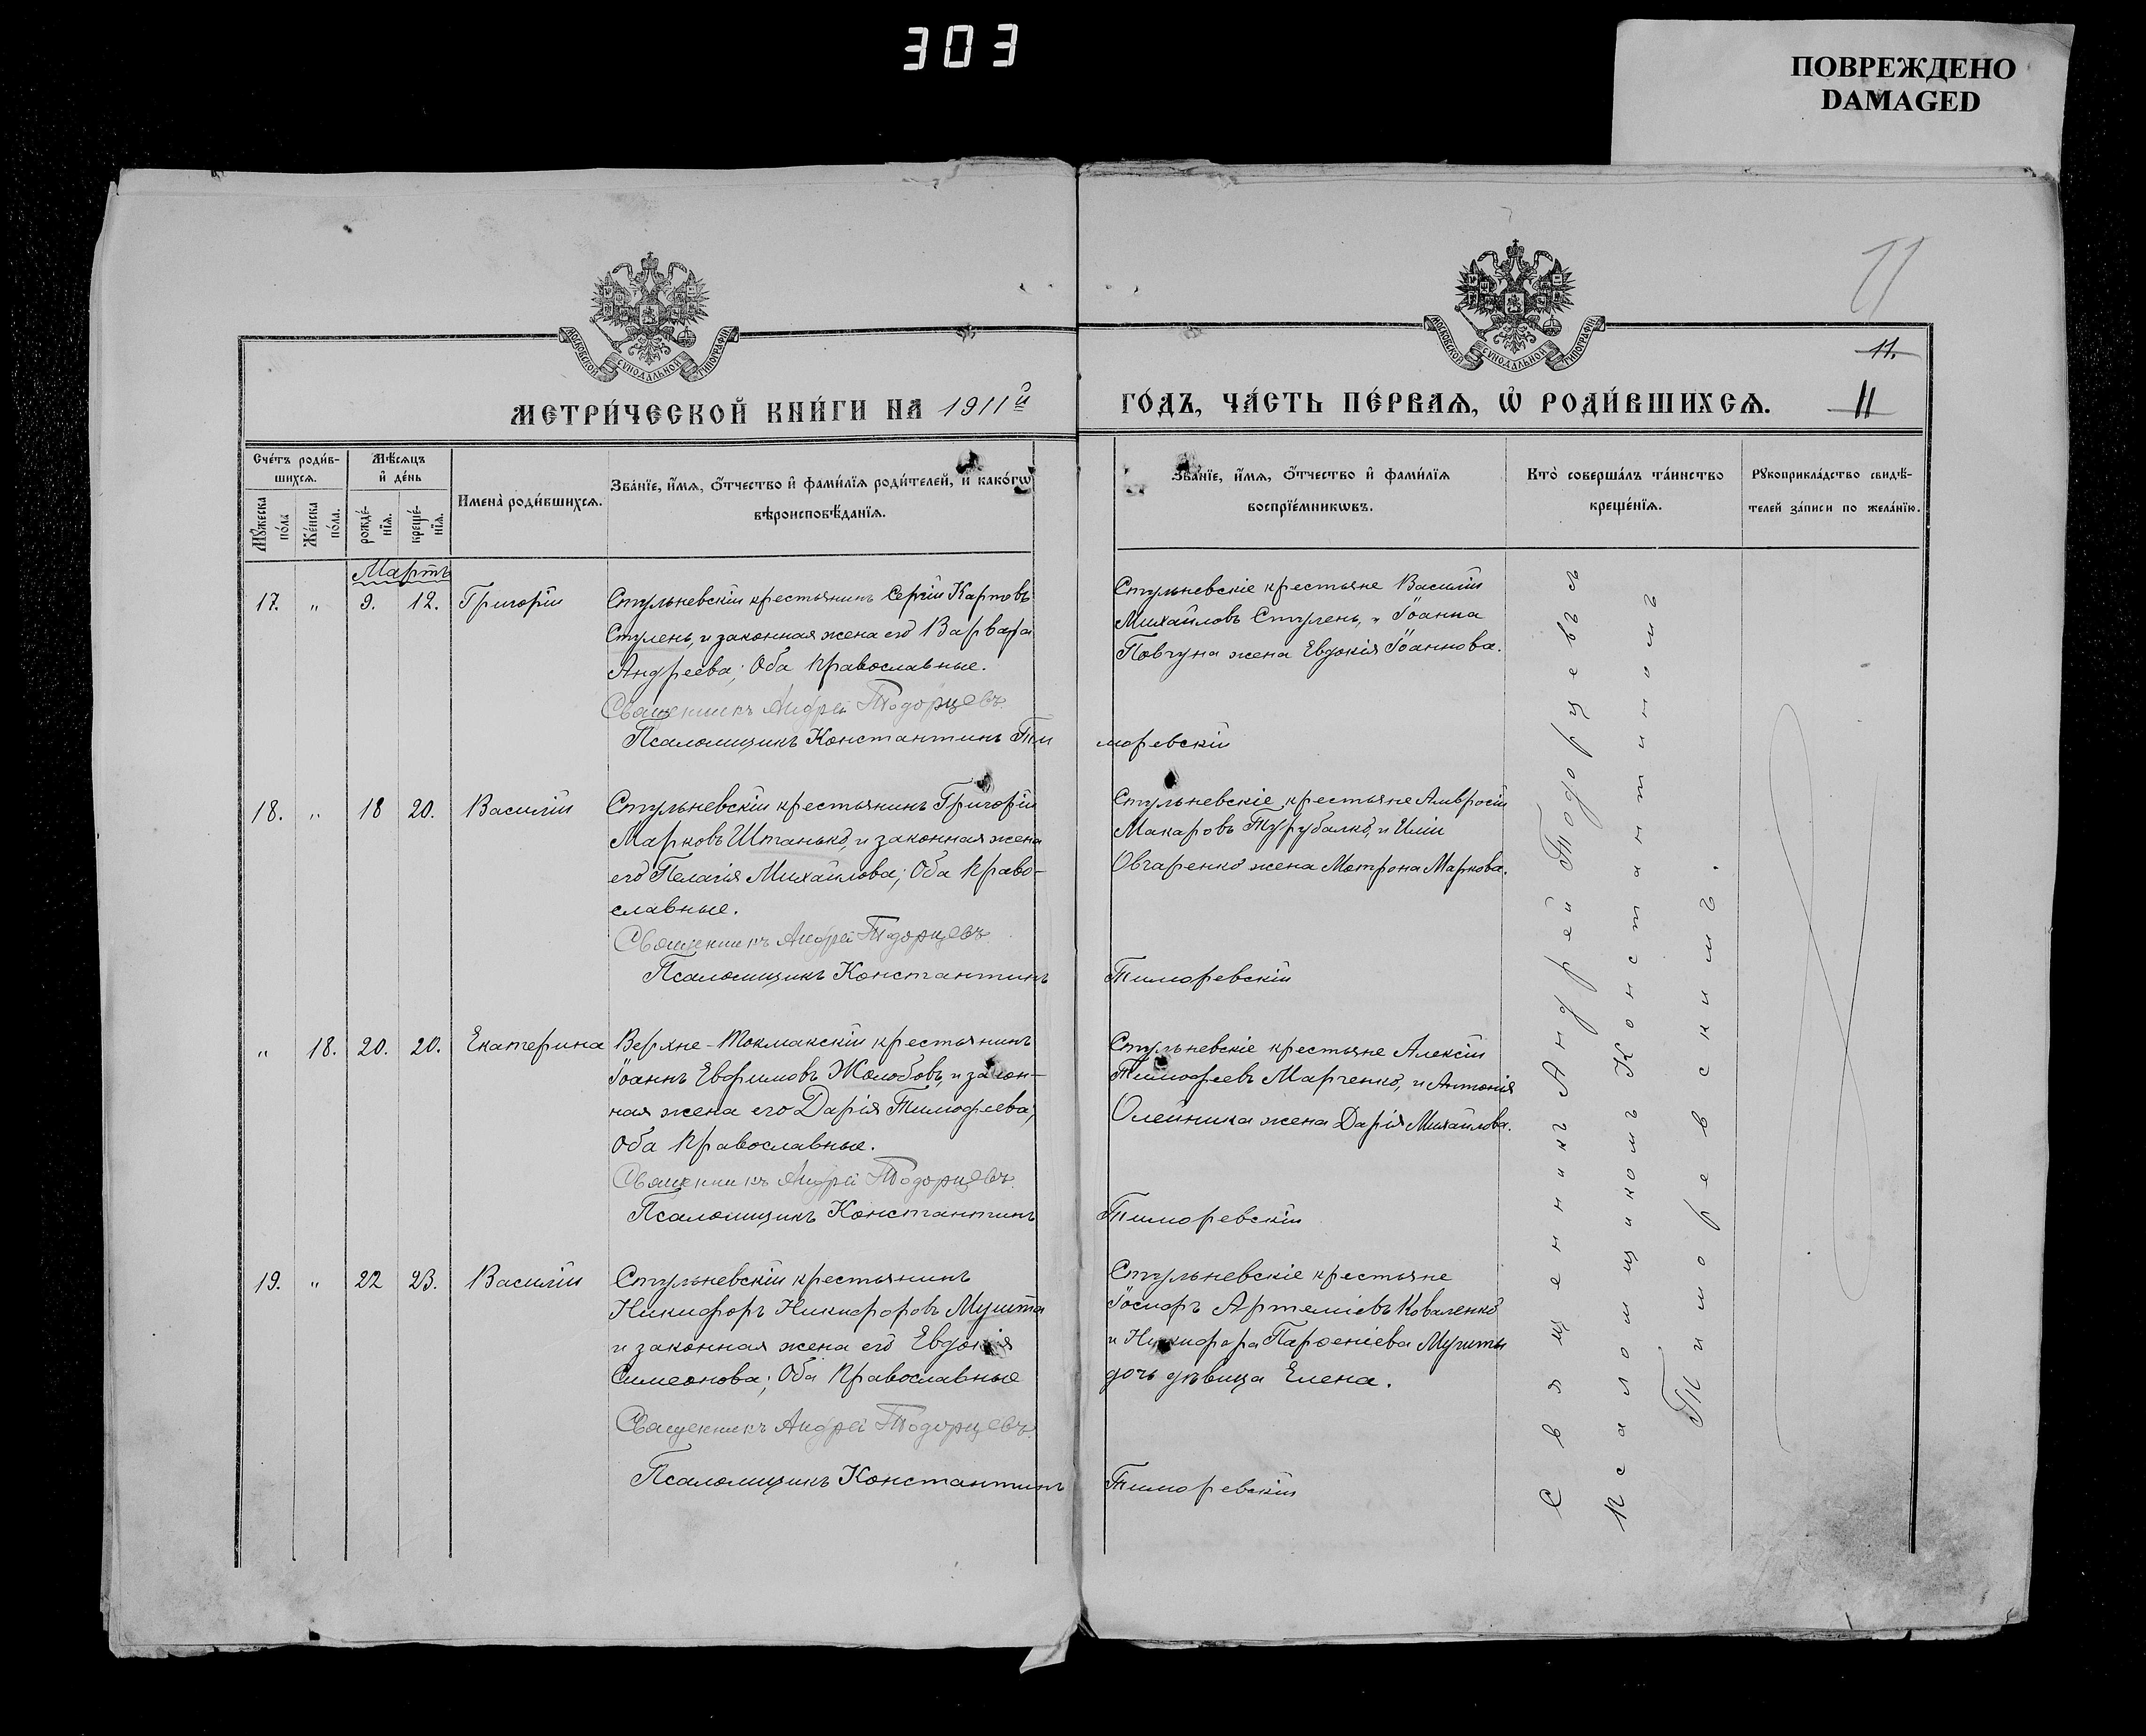 303
ПОВРЕЖДЕНО
DAMAGED
11
МОСКОВСКОЙ СУНОДАЛЬНОЙ ТИПОГРАФІИ
МОСКОВСКОЙ СУНОДАЛЬНОЙ ТИПОГРАФІИ
11.
МЕТРИ́ЧЕСКОЙ КНИ́ГИ НА 1911й
ГО́ДЪ, ЧА́СТЬ ПЕ́РВАѦ, Ѡ РОДИ́ВШИХСѦ.
11
Сче́тъ роди́в-
шихсѧ.
Мꙋ́жеска
по́ла
Же́нска
по́ла.
Мѣ́сѧцъ
и҆ де́нь
рожде́-
нїѧ.
креще́-
нїѧ.
Имена̀ роди́вшихсѧ.
Зва́нїе, и҆́мѧ, ѻ҆́тчество и҆ фами́лїѧ роди́телей, и҆ како́гѡ
вѣроисповѣ́данїѧ.
Зва́нїе, и҆́мѧ, ѻ҆́тчество и҆ фами́лїѧ
воспрїе́мникѡвъ.
Кто̀ соверша́лъ та́инство
креще́нїѧ.
Рꙋкоприкла́дство свидѣ́-
телей за́писи по жела́нїю.
Мартъ
17. „ 9. 12. Григорій
Стульневскій крестьянинъ Сергій Карповъ
Ступень, и законная жена его Варвара
Андреева; Оба православные.
Священникъ Андрей Тодорцевъ
Псаломщикъ Константинъ Тиморевскій
Стульневскіе крестьяне Василій
Михайловъ Ступень, и Іоанна
Повчуна жена Евдокія Іоаннова.
18. „ 18 20. Василій
Стульневскій крестьянинъ Григорій
Марковъ Штанько, и законная жена
его Пелагія Михайлова; Оба право-
славные.
Священникъ Андрей Тодорцевъ
Псаломщикъ Константинъ Тиморевскій
Стульневскіе крестьяне Амвросій
Макаровъ Турубалко, и Иліи
Овчаренко жена Мотрона Маркова.
„ 18. 20. 20. Екатерина
Верхне-Токмакскій крестьянинъ
Іоаннъ Евфимовъ Жолобовъ, и закон-
ная жена его Дарія Тимофеева;
Оба православные.
Священникъ Андрей Тодорцевъ
Псаломщикъ Константинъ Тиморевскій
Стульневскіе крестьяне Алексій
Тимофеевъ Марченко, и Антонія
Олейника жена Дарія Михайлова.
19. „ 22 23. Василій
Стульневскій крестьянинъ
Никифоръ Никифоровъ
и законная жена его Евдокія
Симеонова; Оба православные
Священникъ Андрей Тодорцевъ
Псаломщикъ Константинъ Тиморевскій
Стульневскіе крестьяне
Іосифъ Артеміевъ Коваленко
и Никифора Парфеніева
дочь дѣвица Елена.
Священникъ Андрей Тодорцевъ съ
псаломщикомъ Константиномъ
Тиморевскимъ.